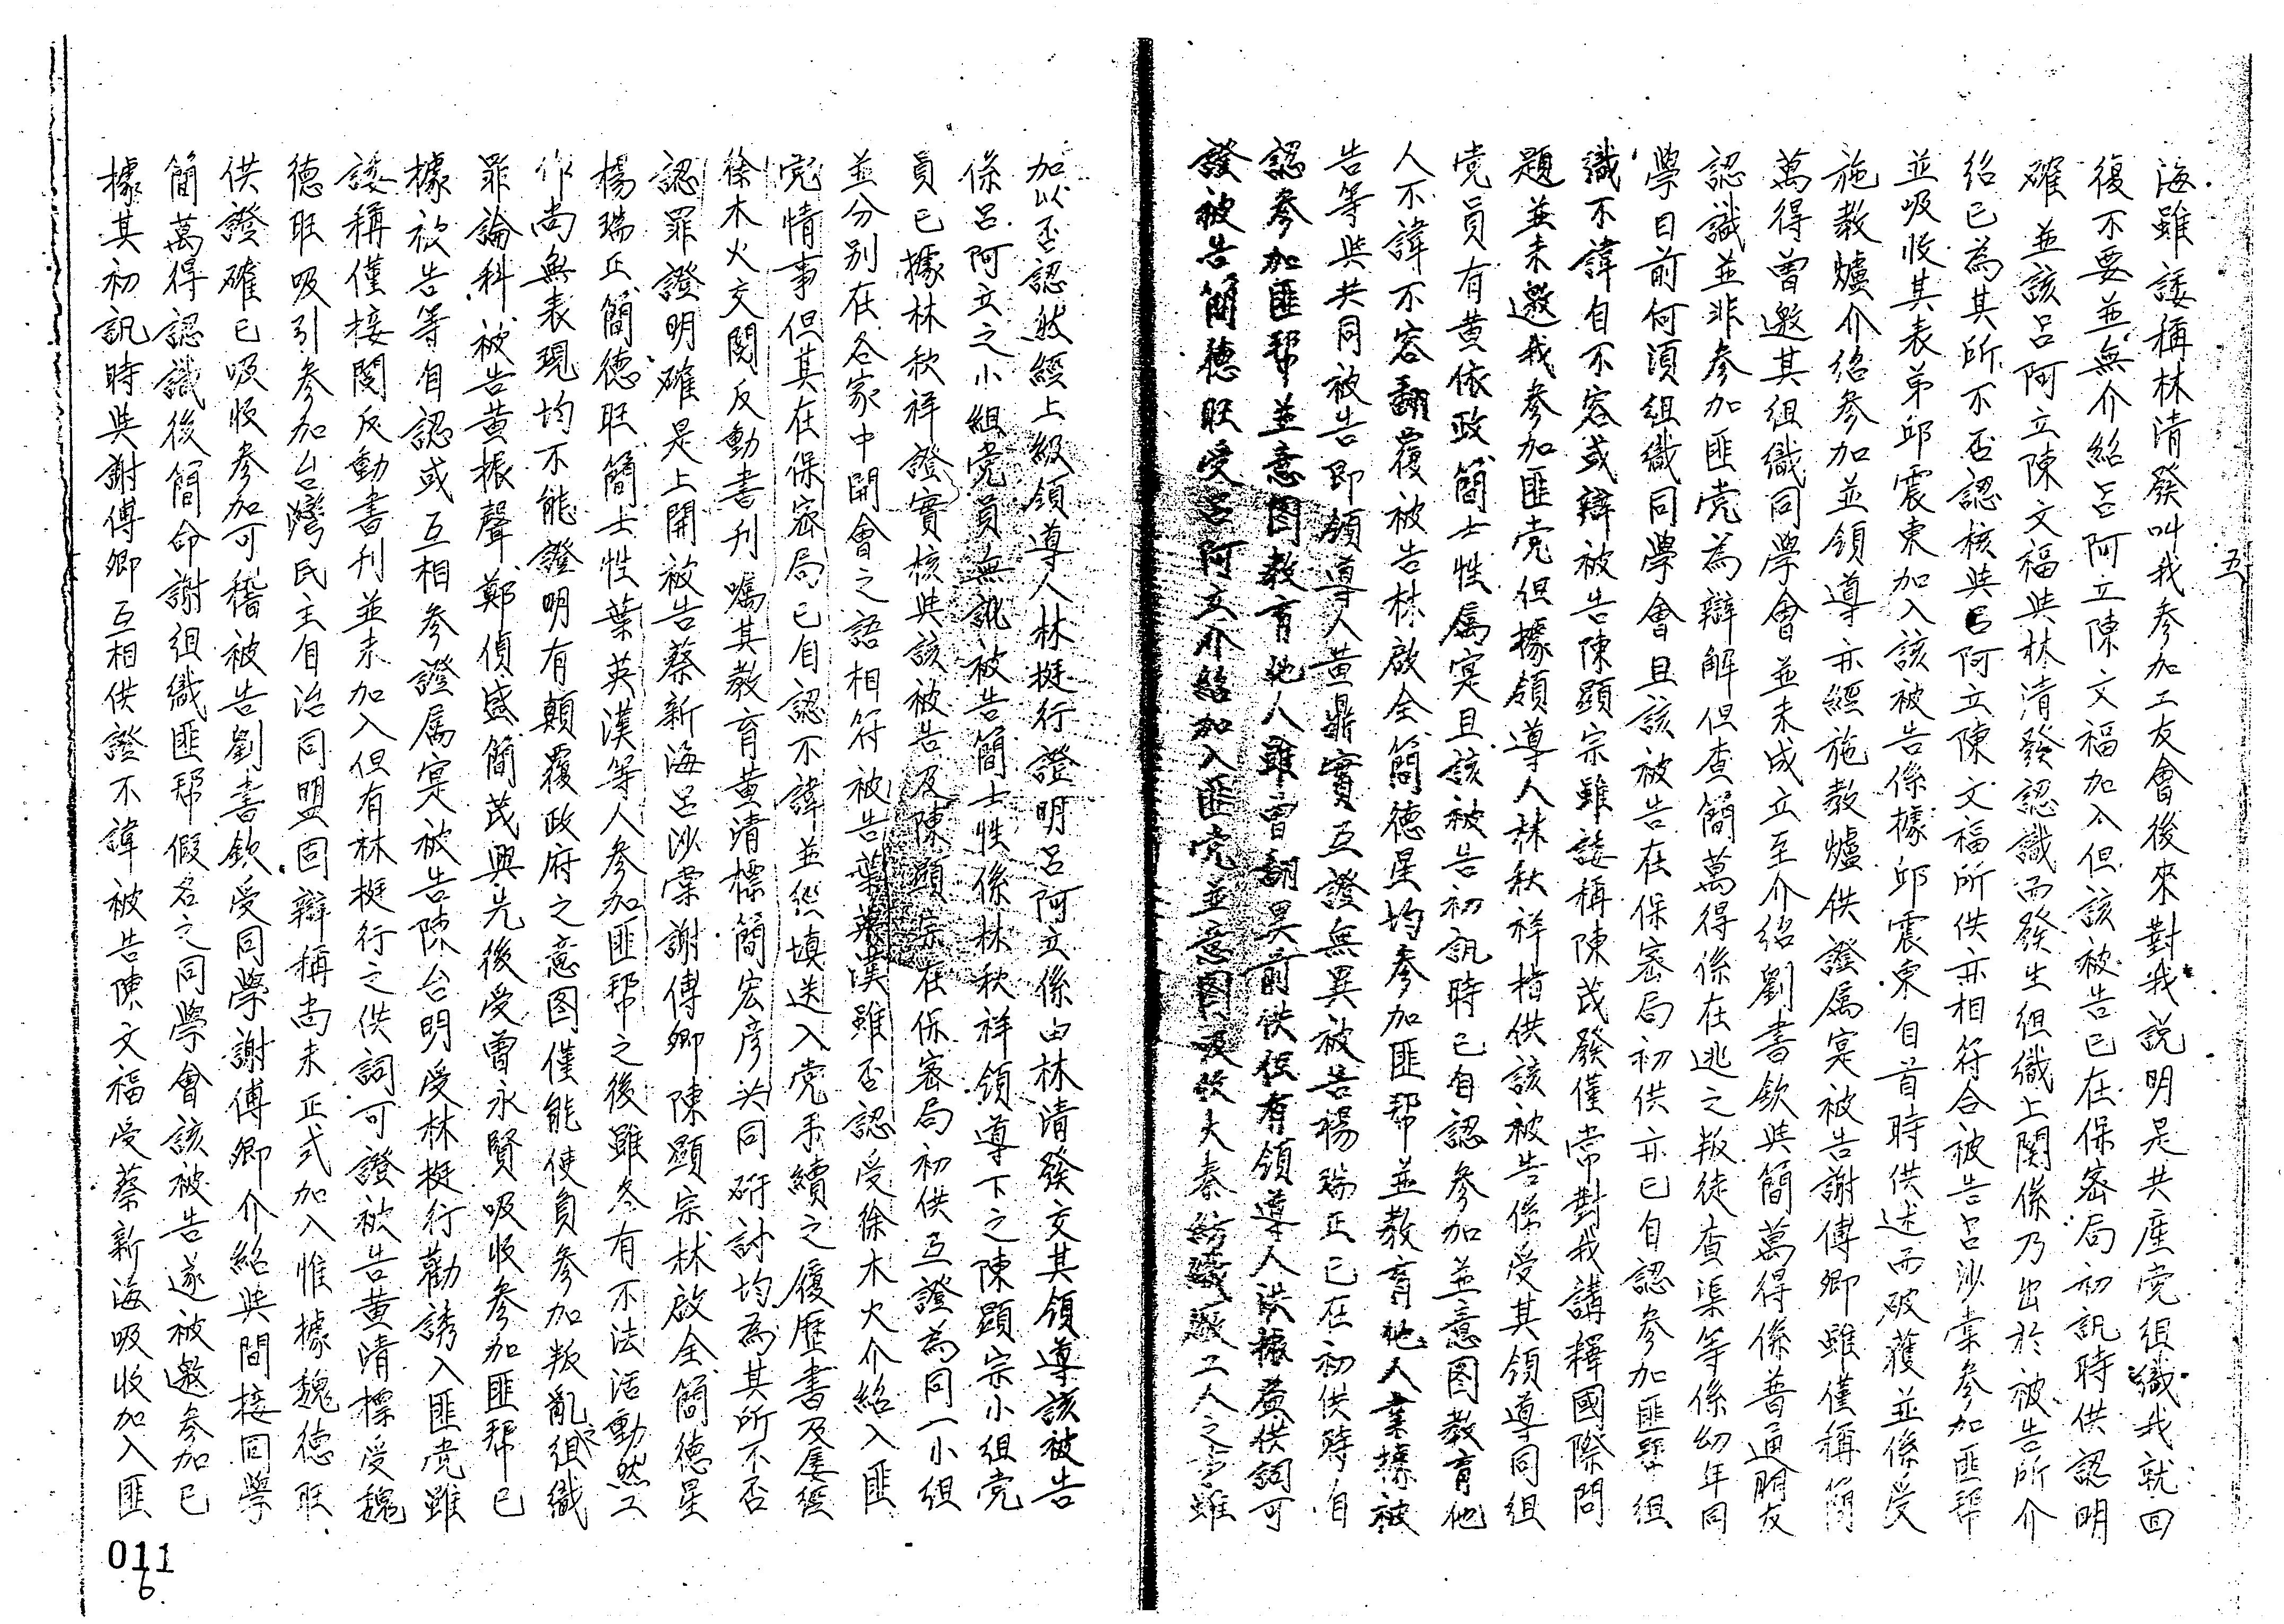 五
海雖諉稱林清發叫我參加工友會後來對我說明是共產党組織我就回
復不要並無介紹呂阿立陳文福加入但該被告已在保密局初訊時供認明
確並該呂阿立陳文福與林清發認識而發生組織上関係乃出於被告所介
紹已為其所不否認核與呂阿立陳文福所供亦相符合被告呂沙棠參加匪帮
並吸收其表弟邱震東加入該被告係據邱震東自首時供述而破獲並係受
施教爐介紹參加並領導亦經施教爐供證属寔被告謝傅卿雖僅稱簡
萬得曾邀其組織同學會並未成立至介紹劉書欽與簡萬得係普通朋友
認識並非參加匪党為辯解但查簡萬得係在逃之叛徒查渠等係幼年同
學目前何須組織同學會且該被告在保密局初供亦已自認參加匪帮組
識不諱自不容或辯被告陳顕宗雖諉稱陳茂發僅常對我講釋國際問
題並未邀我參加匪党但據領導人林秋祥指供該被告係受其領導同組
党員有黄依政簡士性属寔且該被告初訊時已自認參加並意图教育他
人不諱不容翻覆被告林啟全簡德星均參加匪帮並教育他人業據被
告等與共同被告即領導人黄鼎實互證無異被告楊瑞正已在初供時自
認參加匪帮並意图教育他人雖曾翻異前供但有領導人洪振益供詞可
證被告簡德旺受呂阿立介紹加入匪党並意图吸收大秦紡織廠工人之言雖
加以否認然經上級領導人林挺行證明呂阿立係由林清發交其領導該被告
係呂阿立之小組党員無訛被告簡士性係林秋祥領導下之陳顕宗小組党
員已據林秋祥證實核與該被告及陳顕宗在保密局初供互證為同一小組
並分别在各家中開會之語相符被告葉英漢雖否認受徐木火介紹入匪
党情事但其在保密局已自認不諱並然填送入党手續之履歷書及屡經
徐木火交閱反動書刊嘱其教育黄清標簡宏彦共同研討均為其所不否
認罪證明確是上開被告蔡新海呂沙棠謝傅卿陳顕宗林啟全簡德星
楊瑞正簡德旺簡士性葉英漢等人參加匪帮之後雖各有不法活動然工
作尚無表現均不能證明有顛覆政府之意图僅能使負參加叛亂之組織
罪論科被告黄振聲鄭偵盛簡茂興先後受曾永賢吸收參加匪帮已
據被告等自認或互相參證属寔被告陳台明受林挺行勸誘入匪党雖
諉稱僅接閱反動書刊並未加入但有林挺行之供詞可證被告黄清標受魏
德旺吸引參加台灣民主自治同盟固辯稱尚未正式加入惟據魏德旺
供證確已吸收參加可稽被告劉書欽受同學謝傅卿介紹與間接同學
簡萬得認識後簡命謝組織匪帮假名之同學會該被告遂被邀參加已
據其初訊時與謝傅卿互相供證不諱被告陳文福受蔡新海吸收加入匪
011
6